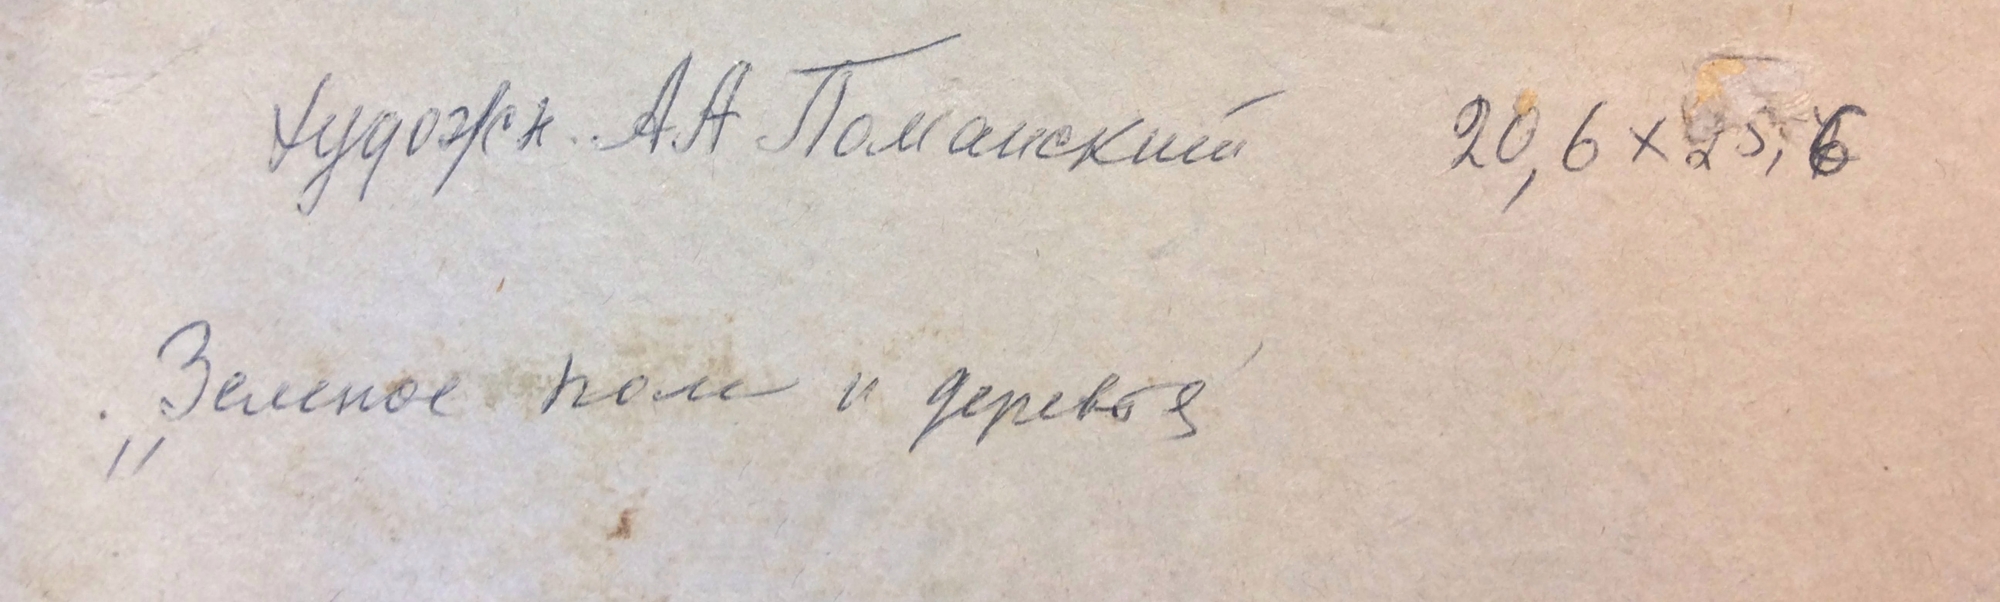 художн. А А Поманский 20,6 x 25,6
„Зеленое поле и деревья"